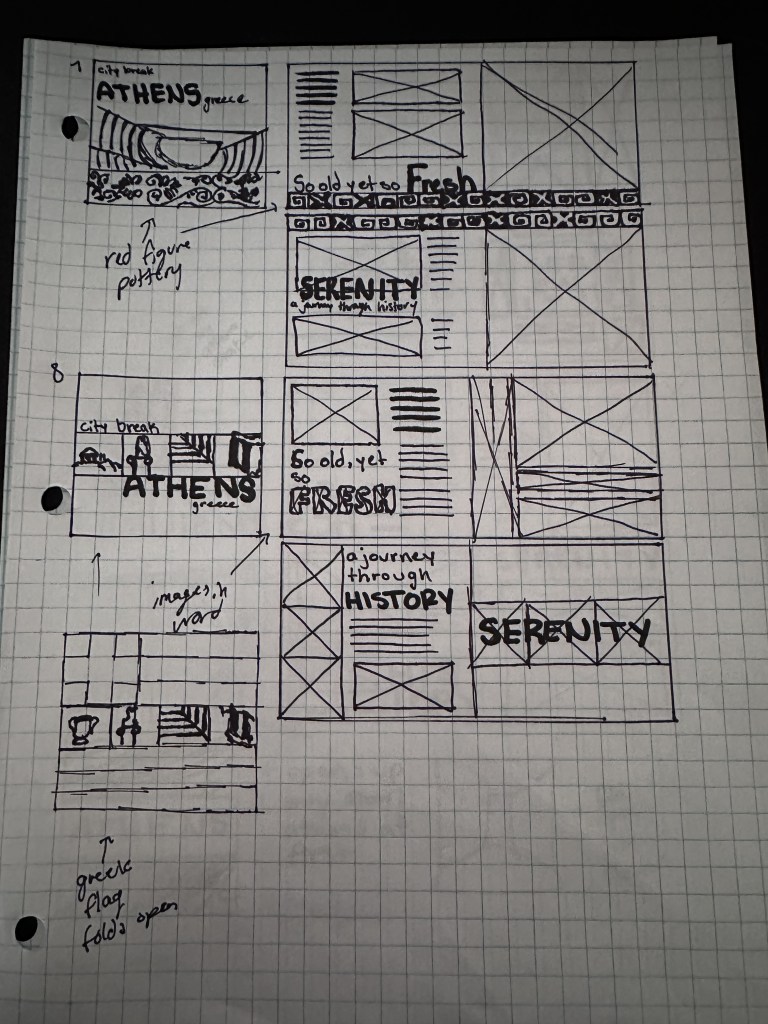 1
city break
ATHENS greece
So old yet so Fresh
red figure
pottery
SERENITY
a journey through history
8
city break
ATHENS
greece
So old, yet
so
FRESH
images in
word
a journey
through
HISTORY
SERENITY
greek
flag
folds open